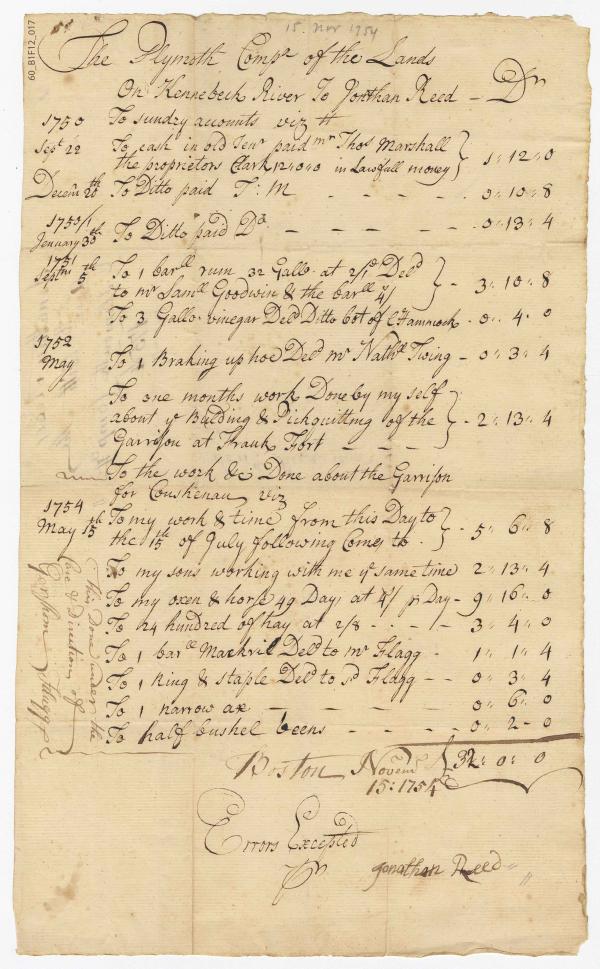 60_B1F12_017
15. Nov 1754
The Plymoth Compa of the Lands
On Kennebeck River To Jonthan Reed – Dr
1750 To sundry accounts viz
Sept 22 To cash in old Tenr paid mr Thos Marshall
the proprietors Clark 12:0:0 in Lawfull money } 1:12:0
Decemr 20th To Ditto paid T: M – – – – 0:10:8
1750/1
Jenuary 30th To Ditto paid Do – – – – – 0:13:4
1751
Septmr 5th To 1 barll rum 32 Gallo at 2/1 Deld
to mr Samll Goodwin & the barll 4/ } – 3:10:8
To 3 Gallo vinegar Deld Ditto bot of C Hammock – 0:4:0
1752
May To 1 Braking up hoe Deld mr Nathll Twing – 0:3:4
To one months work Done by my self
about ye Bulding & Pickquitting of the } – 2:13:4
Garrison at Frank Fort – – –
To the work &c Done about the Garrison
for Coushenau viz
1754
May 15th To my work & time from this Day to
the 15th of July following Comes to } – 5:6:8
To my sons working with me ye same time 2:13:4
To my oxen & horse 49 Day at 4/ pr Day – 9:16:0
To 24 hundred of hay at 2/8 – – – 3:4:0
To 1 barll Mackril Deld to mr Flagg – 1:1:4
To 1 Ring & staple Deld to sd Flagg – – 0:3:4
To 1 narrow ax – – – – – 0:6:0
To half bushel beens – – – – 0:2–0
This Done under the
care & Direction of
Gershom Flagg
Boston Novemr 32:0:0
15: 1754
Errors Excepted
pr Jonathan Reed